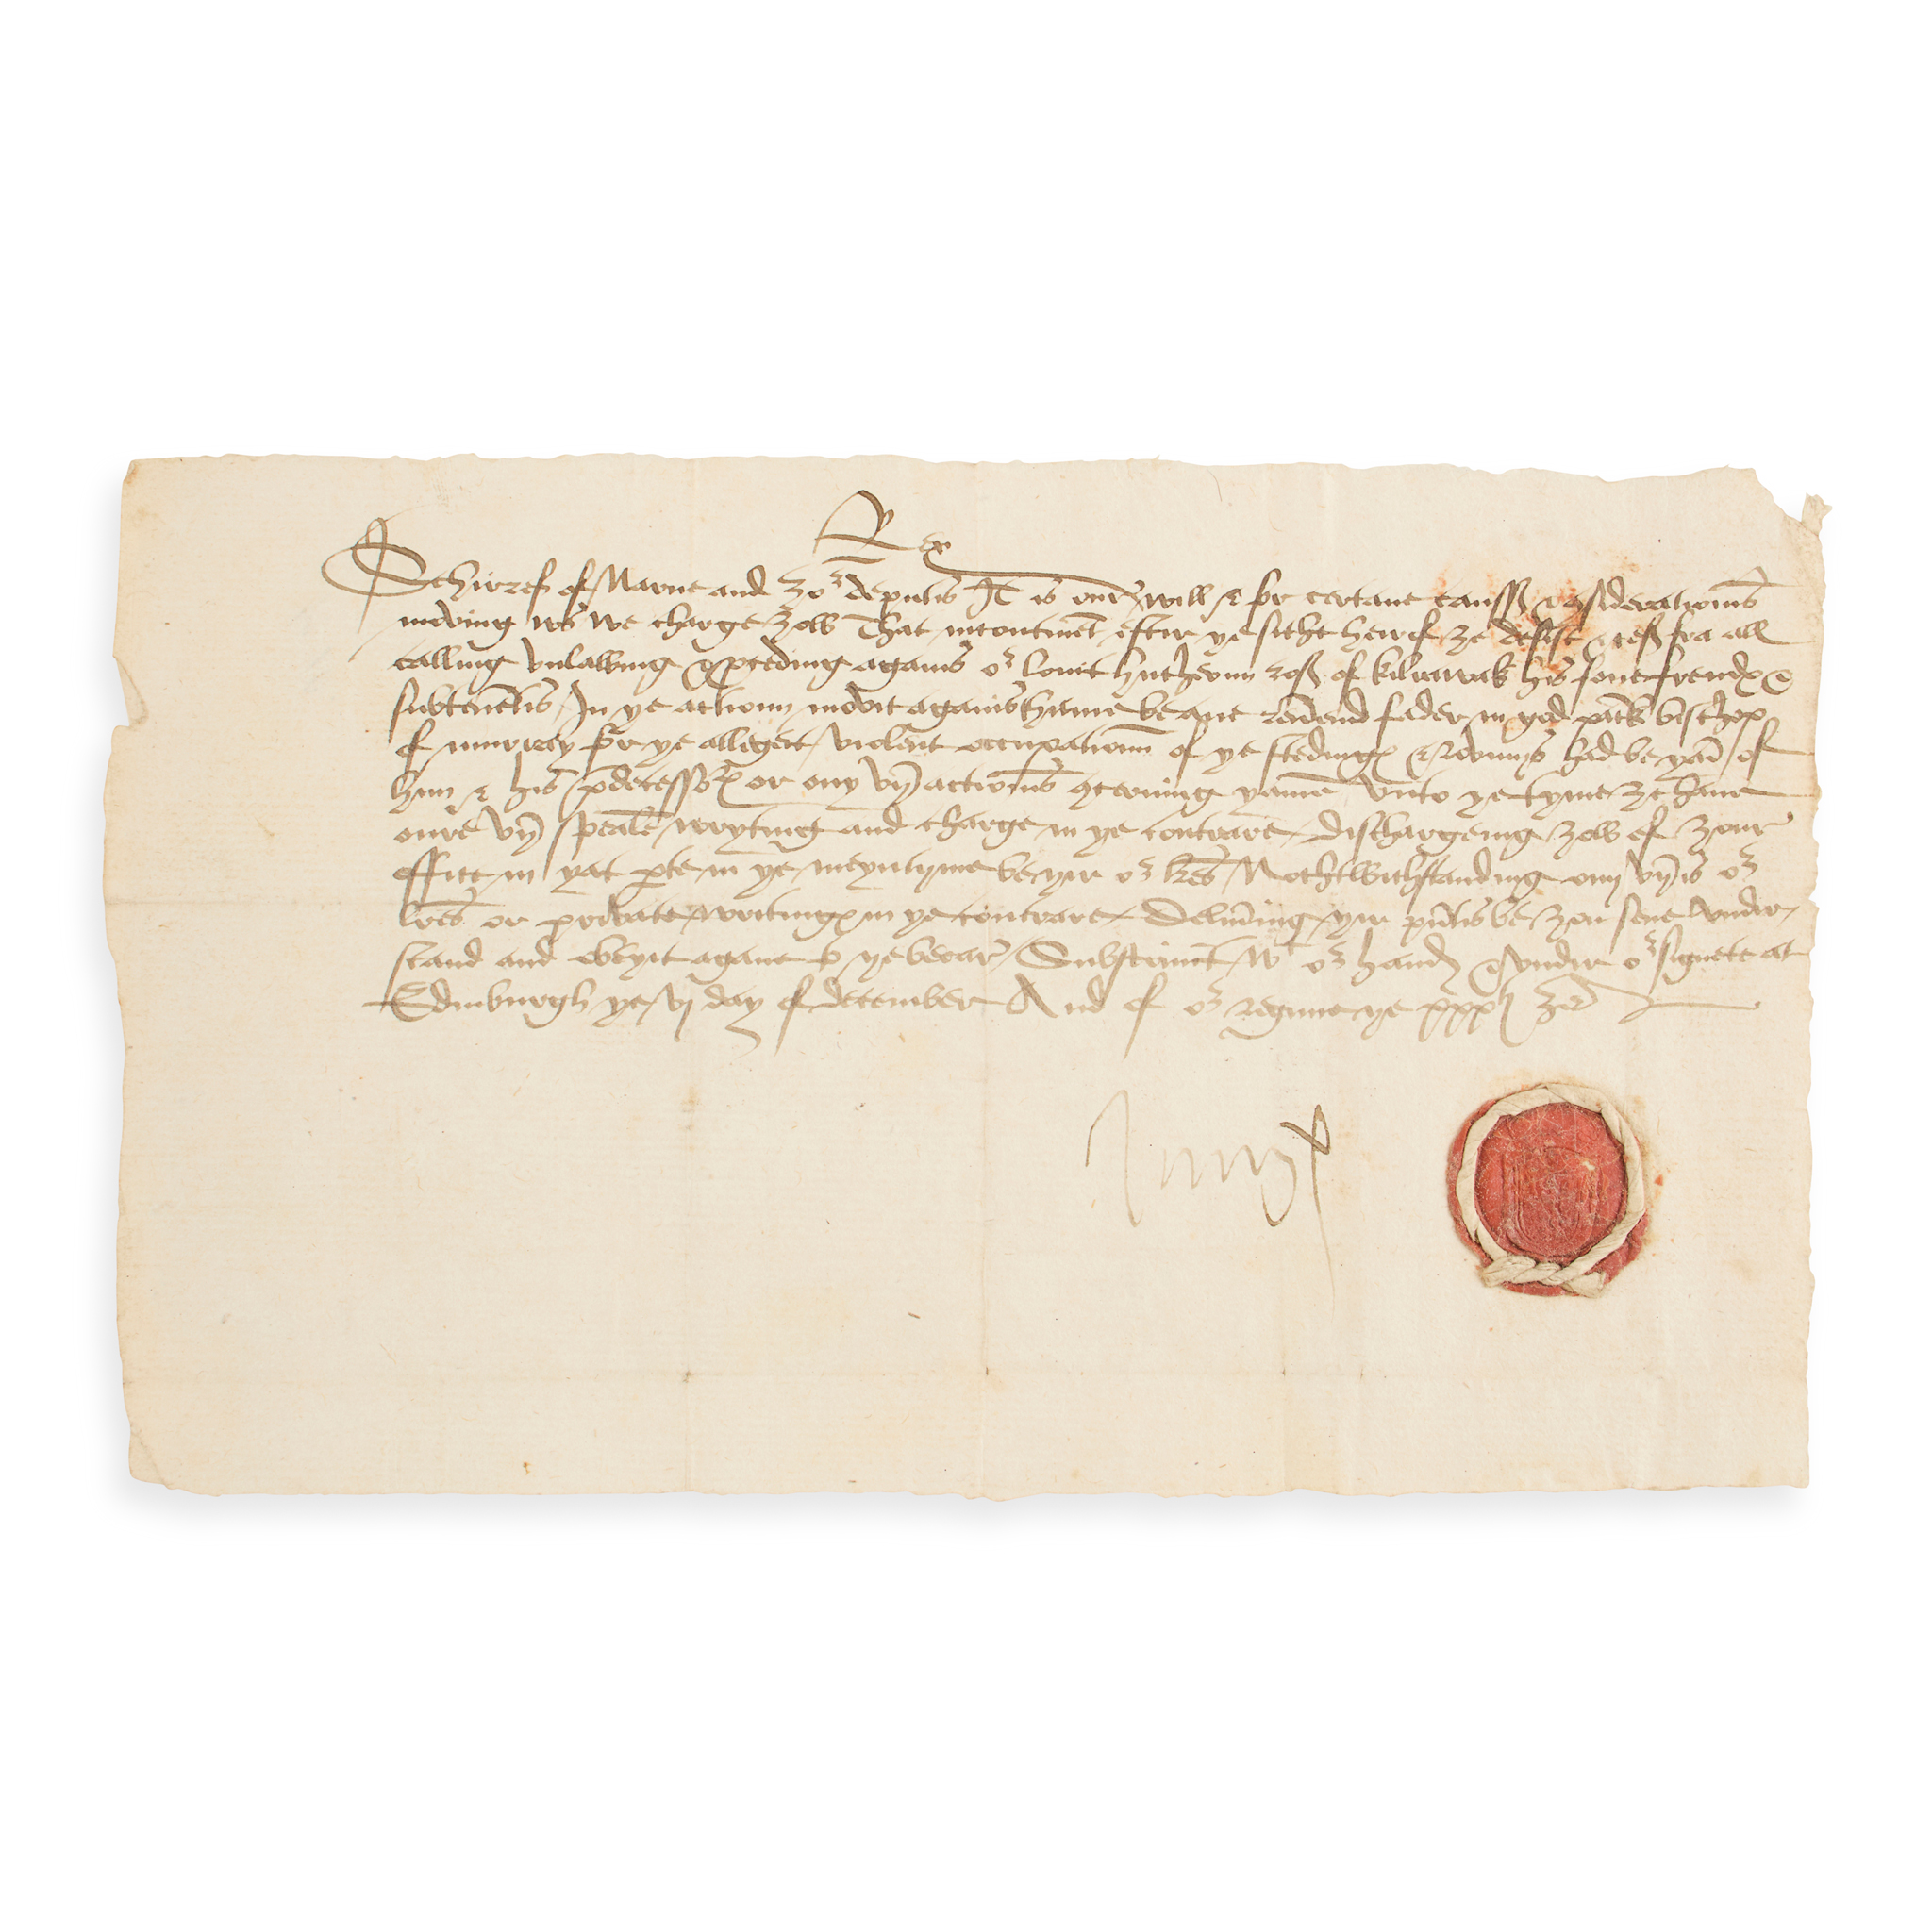 Rex
Schirref of Narne and ȝor deputis It is our will & for certane causß & 9siderationis
moving ws We charge ȝow That incontinēt eftir ye sicht heirof ȝe desist & ceß fra all
calling vnlawing & p̱ceding aganis or louit hucheoun roß of kilrawak his sone frendꝭ &
subtenētis In ye actioun movit aganis hime be ane reuērend fader in god pātk bischop
of murray for ye allegeit violēt occupatioun of ye stedingꝭ & rovmys had be yām of
him & his p̄decessorꝭ or ony vyr actiōnis 9cerning yame Vnto ye tyme ȝe haue
oure vyr speāle wryting and charge in ye contrare Dischargeing ȝow of ȝour
office in yat ꝑte in ye meyntyme be yir or lrēs Nochtwithstanding ony vyris or
lrēs or private writingꝭ in ye contrare Deliuēring yir p̄ntis be ȝou sene vndir
stand and obeyit agane to ye berar Subscriuit wt or hand & vndir or signete at
Edinburgh ye vj day of december And of or regnne ye xxxj ȝer
James R